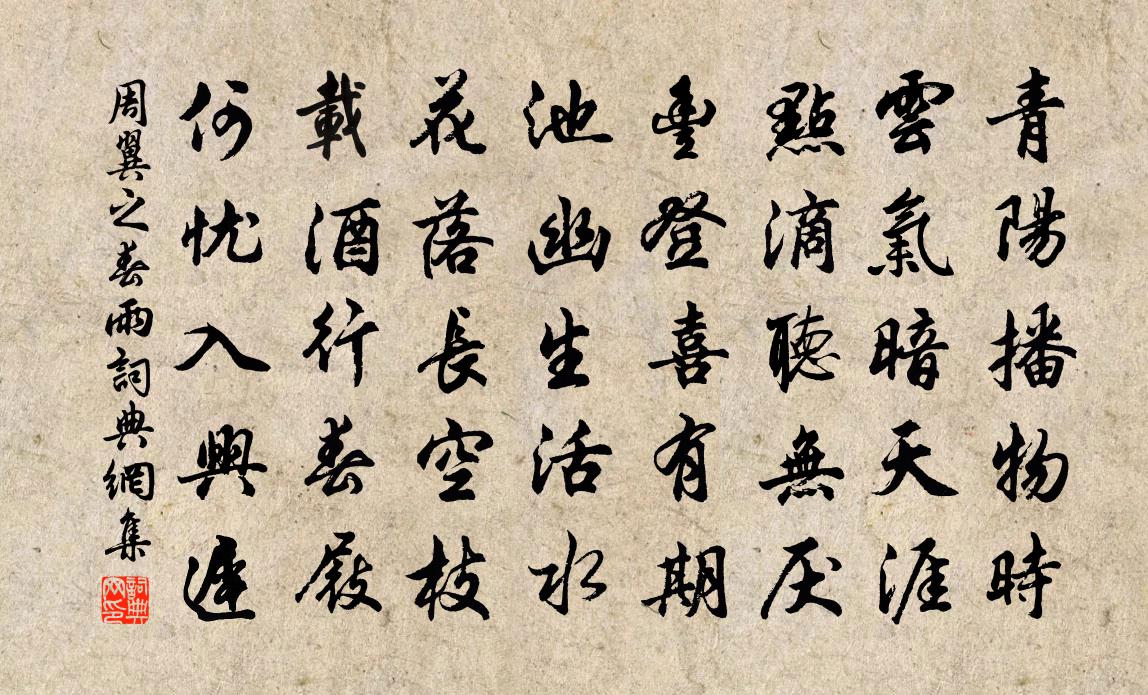 青陽播物時
雲氣暗天涯
點滴聽無厌
豐登喜有期
池幽生活水
花落長空枝
載酒行春屐
何忧入興遲
周翼之春雨詞典網集
詞典网印